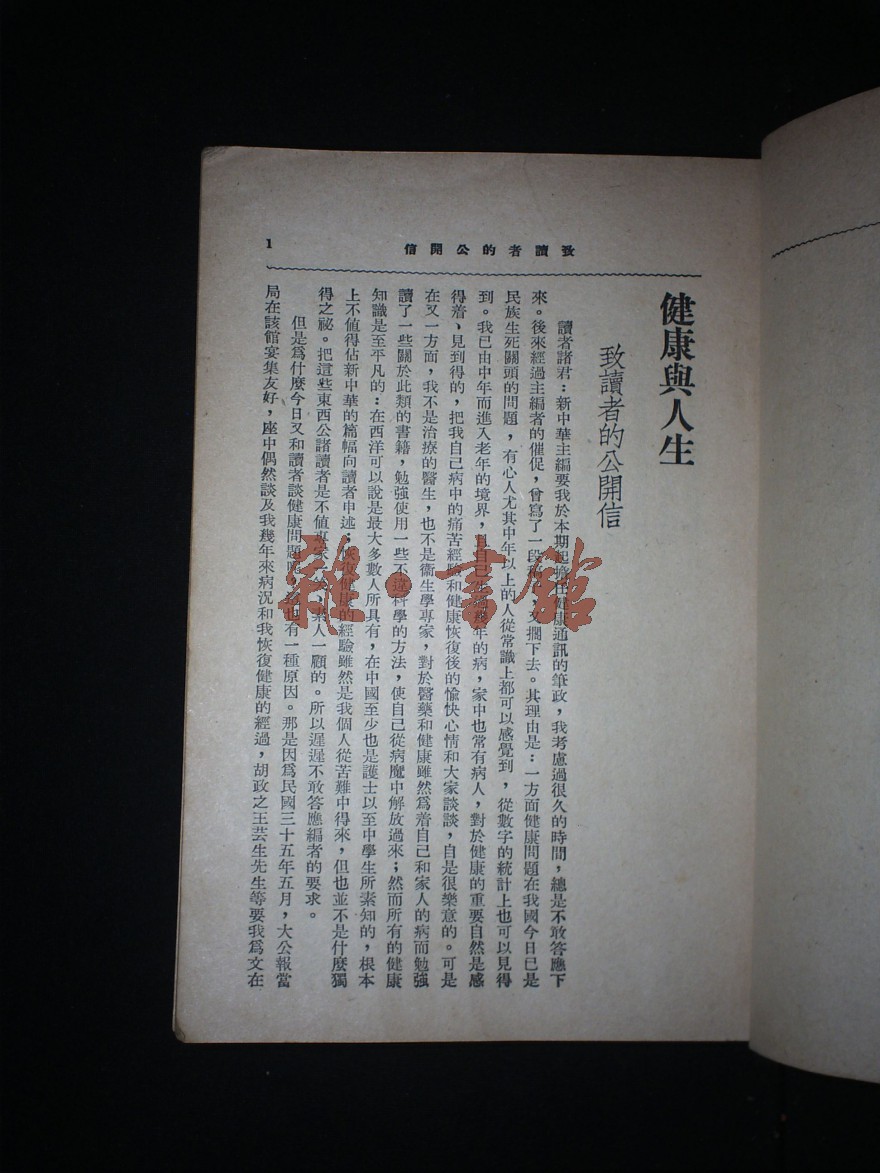 致讀者的公開信
1
健康與人生
致讀者的公開信
讀者諸君：新中華主編要我於本期起擔任健康通訊的筆政，我考慮過很久的時間，總是不敢答應下
來。後來經過主編者的催促，曾寫了一段，又擱下去。其理由是：一方面健康問題在我國今日已是
民族生死關頭的問題，有心人尤其中年以上的人從常識上都可以感覺到，從數字的統計上也可以見得
到。我已由中年而進入老年的境界，且自己生過幾年的病，家中也常有病人，對於健康的重要自然是感
得着、見到得的，把我自己病中的痛苦經驗和健康恢復後的愉快心情和大家談談，自是很樂意的。可是
在又一方面，我不是治療的醫生，也不是衞生學專家，對於醫藥和健康雖然爲着自己和家人的病而勉強
讀了一些關於此類的書籍，勉強使用一些不違科學的方法，使自己從病魔中解放過來；然而所有的健康
知識是至平凡的：在西洋可以說是最大多數人所具有，在中國至少也是護士以至中學生所素知的，根本
上不值得佔新中華的篇幅向讀者申述；恢復健康的經驗雖然是我個人從苦難中得來，但也並不是什麼獨
得之祕。把這些東西公諸讀者是不值專家素人一顧的。所以遲遲不敢答應編者的要求。
但是爲什麼今日又和讀者談健康問題呢？這也有一種原因。那是因爲民國三十五年五月，大公報當
局在該館宴集友好，座中偶然談及我幾年來病況和我恢復健康的經過，胡政之王芸生先生等要我爲文在
雜·書館